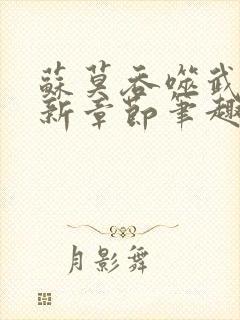 蘇莫吞噬武
新章節筆趣
月影舞